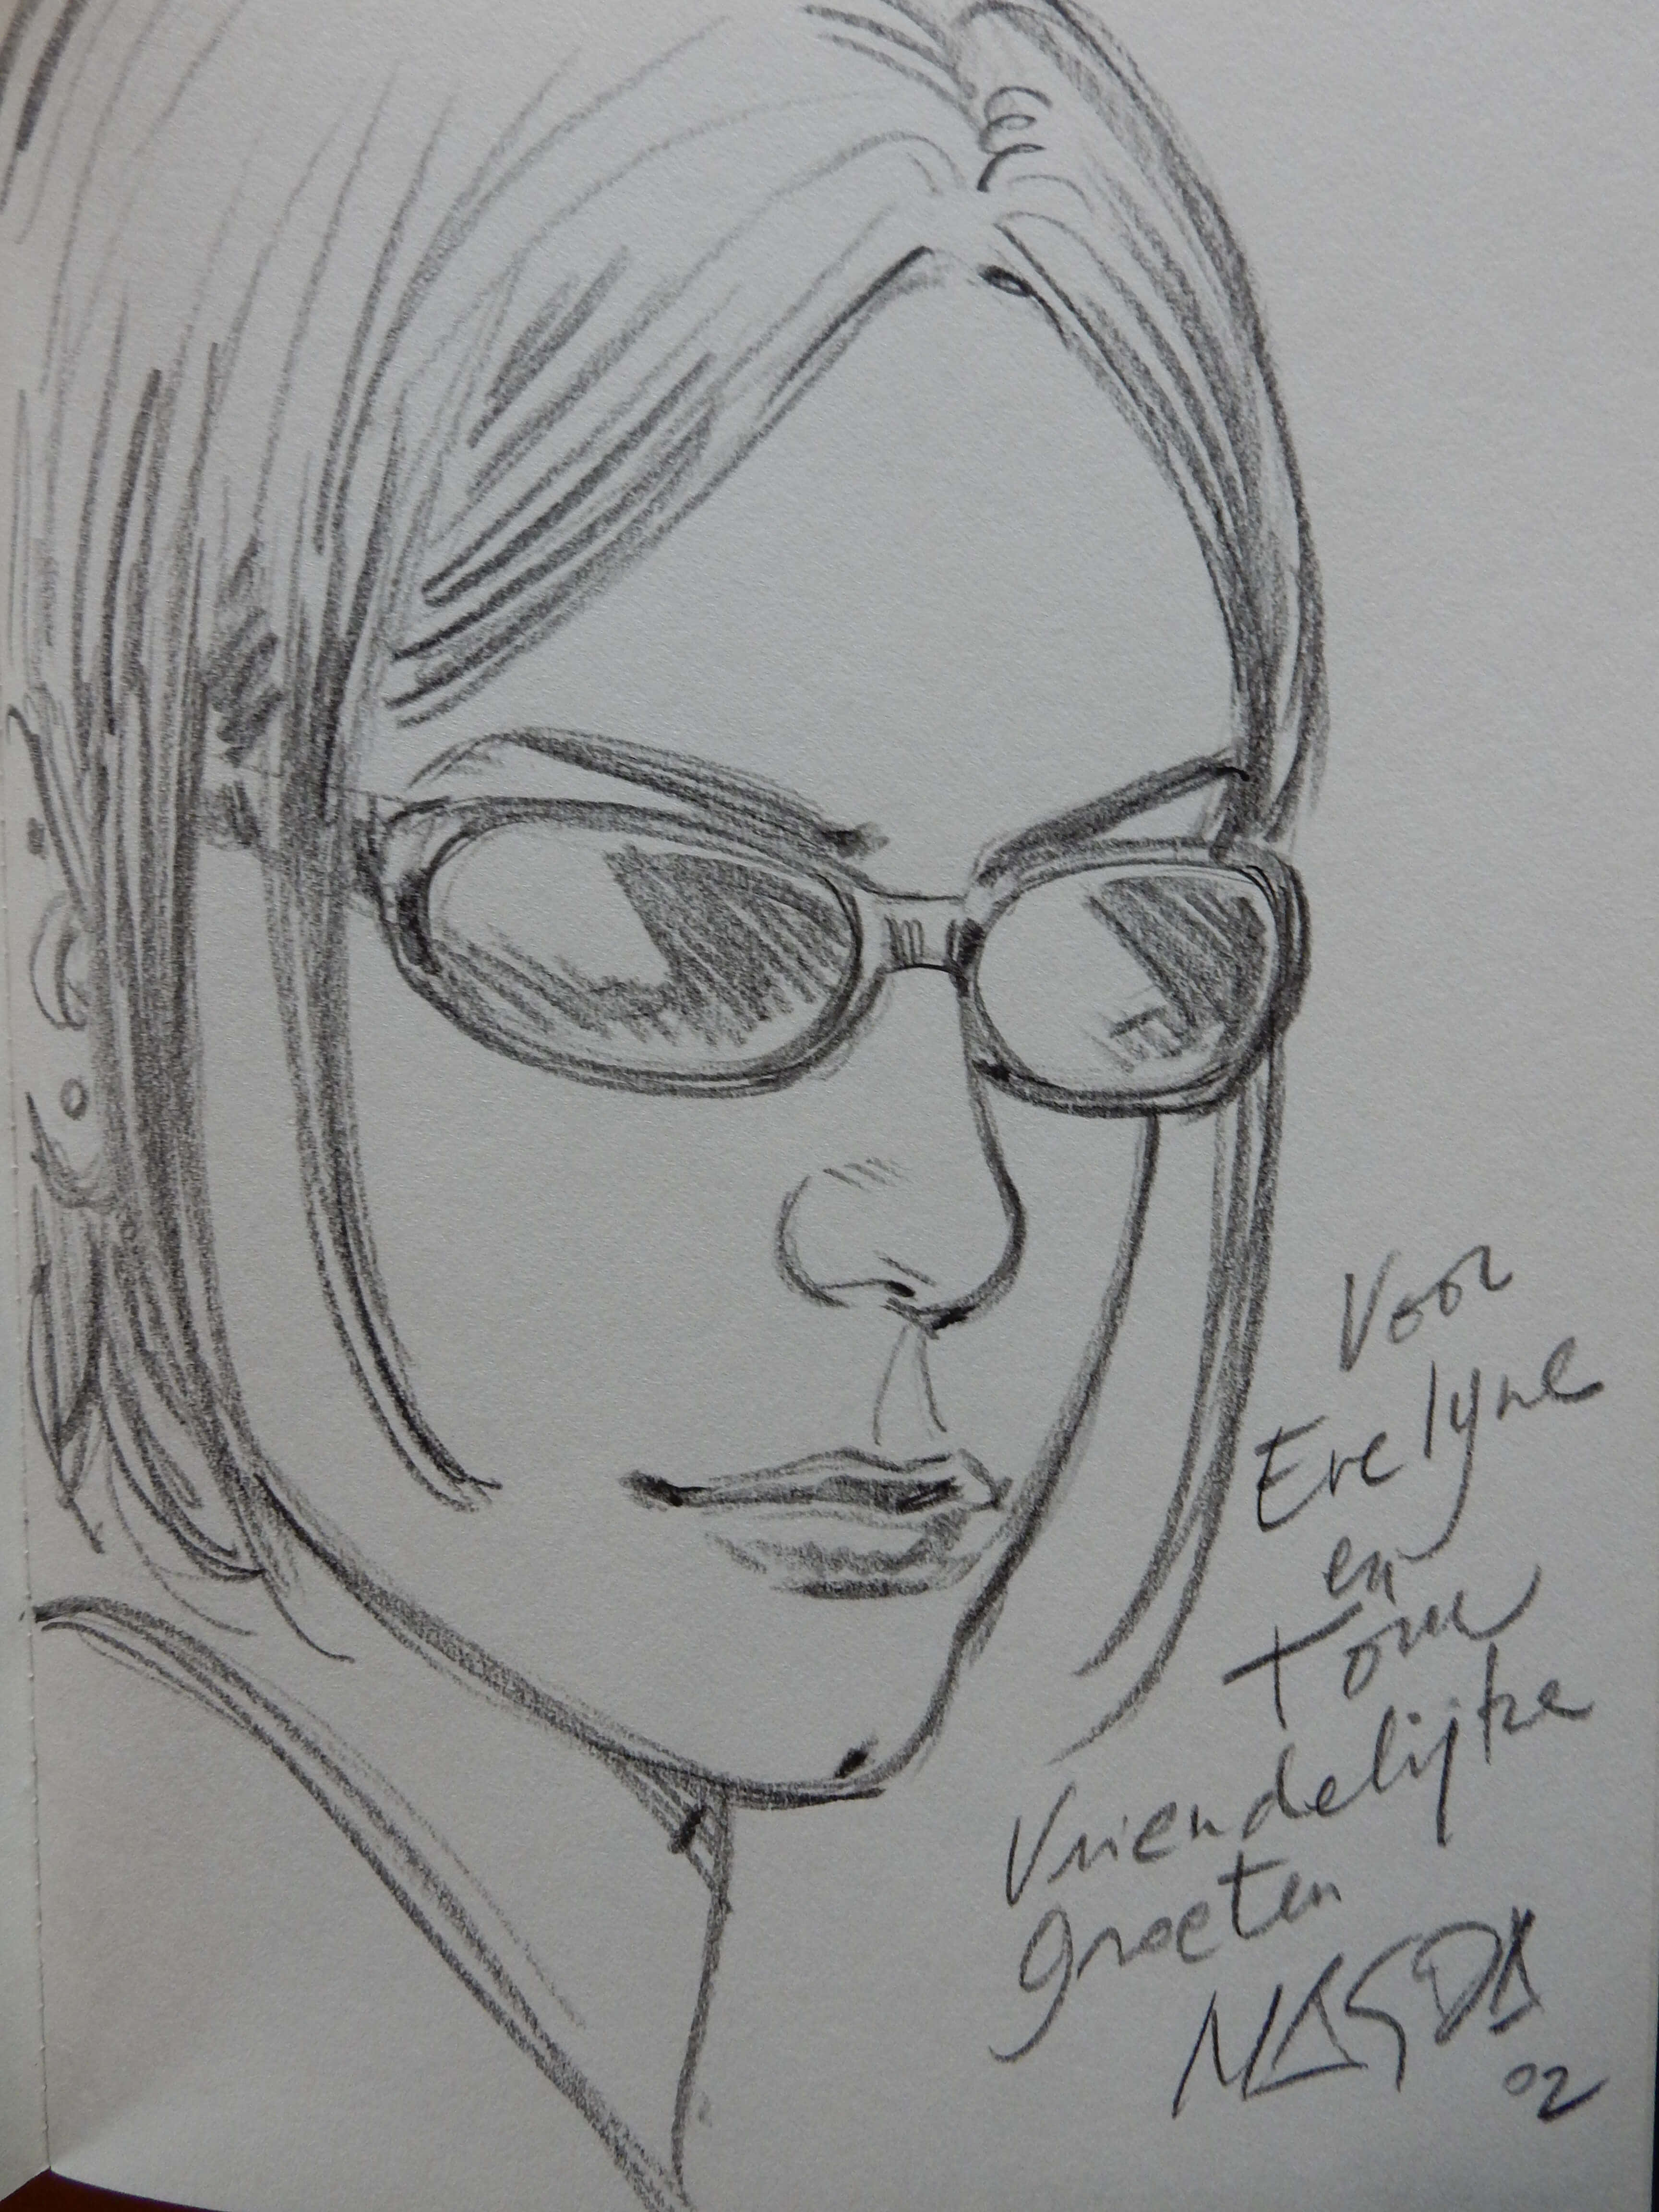 Voor
Evelyne
en
Tom
Vriendelijke
groeten
02